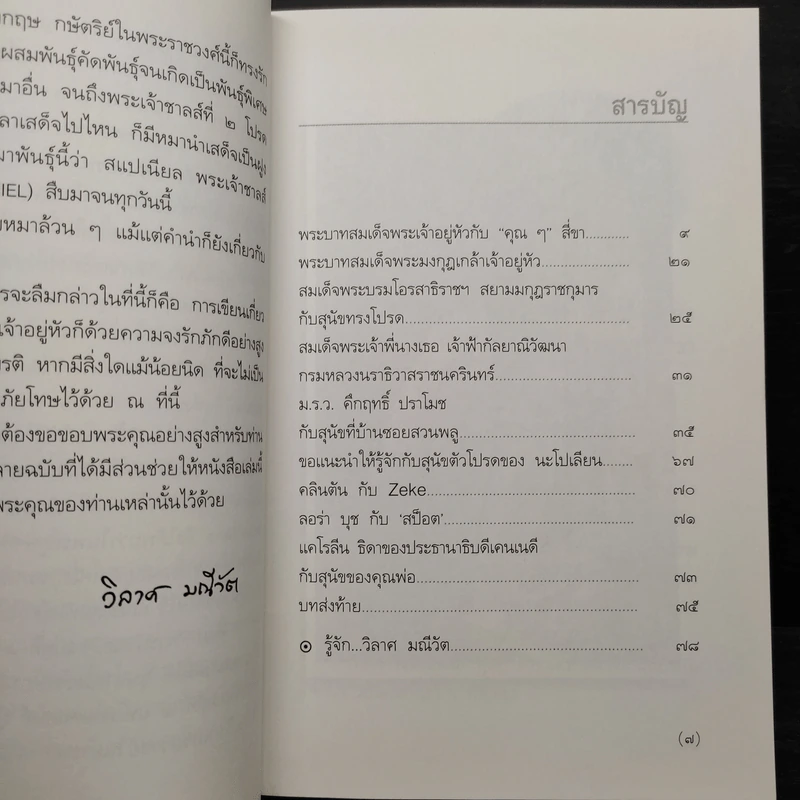 กฤษ กษัตริย์ในพระราชวงศ์นี้ก็ทรงรัก
ผสมพันธุ์คัดพันธุ์จนเกิดเป็นพันธุ์พิเศษ
มาอื่น จนถึงพระเจ้าชาลส์ที่ ๒ โปรด
ลาเสด็จไปไหน ก็มีหมานำเสด็จเป็นฝูง
มาพันธุ์นี้ว่า สแปเนียล พระเจ้าชาลส์
IEL) สืบมาจนทุกวันนี้
หมาล้วน ๆ แม้แต่คำนำก็ยังเกี่ยวกับ
รจะลืมกล่าวในที่นี้ก็คือ การเขียนเกี่ยว
เจ้าอยู่หัวก็ด้วยความจงรักภักดีอย่างสูง
รติ หากมีสิ่งใดแม้น้อยนิด ที่จะไม่เป็น
ภัยโทษไว้ด้วย ณ ที่นี้
ต้องขอขอบพระคุณอย่างสูงสำหรับท่าน
ลายฉบับที่ได้มีส่วนช่วยให้หนังสือเล่มนี้
พระคุณของท่านเหล่านั้นไว้ด้วย
วิลาศ มณีวัต
สารบัญ
พระบาทสมเด็จพระเจ้าอยู่หัวกับ "คุณ ๆ" สี่ขา........... ๙
พระบาทสมเด็จพระมงกุฎเกล้าเจ้าอยู่หัว..................... ๒๑
สมเด็จพระบรมโอรสาธิราชฯ สยามมกุฎราชกุมาร
กับสุนัขทรงโปรด..................................................... ๒๕
สมเด็จพระเจ้าพี่นางเธอ เจ้าฟ้ากัลยาณิวัฒนา
กรมหลวงนราธิวาสราชนครินทร์................................. ๓๑
ม.ร.ว. คึกฤทธิ์ ปราโมช
กับสุนัขที่บ้านซอยสวนพลู......................................... ๓๕
ขอแนะนำให้รู้จักกับสุนัขตัวโปรดของ นะโปเลียน....... ๖๗
คลินตัน กับ Zeke................................................. ๗๐
ลอร่า บุช กับ 'สป็อต'............................................. ๗๑
แคโรลีน ธิดาของประธานาธิบดีเคนเนดี
กับสุนัขของคุณพ่อ.................................................. ๗๓
บทส่งท้าย............................................................... ๗๕
๏ รู้จัก...วิลาศ มณีวัต............................................. ๗๘
(๗)